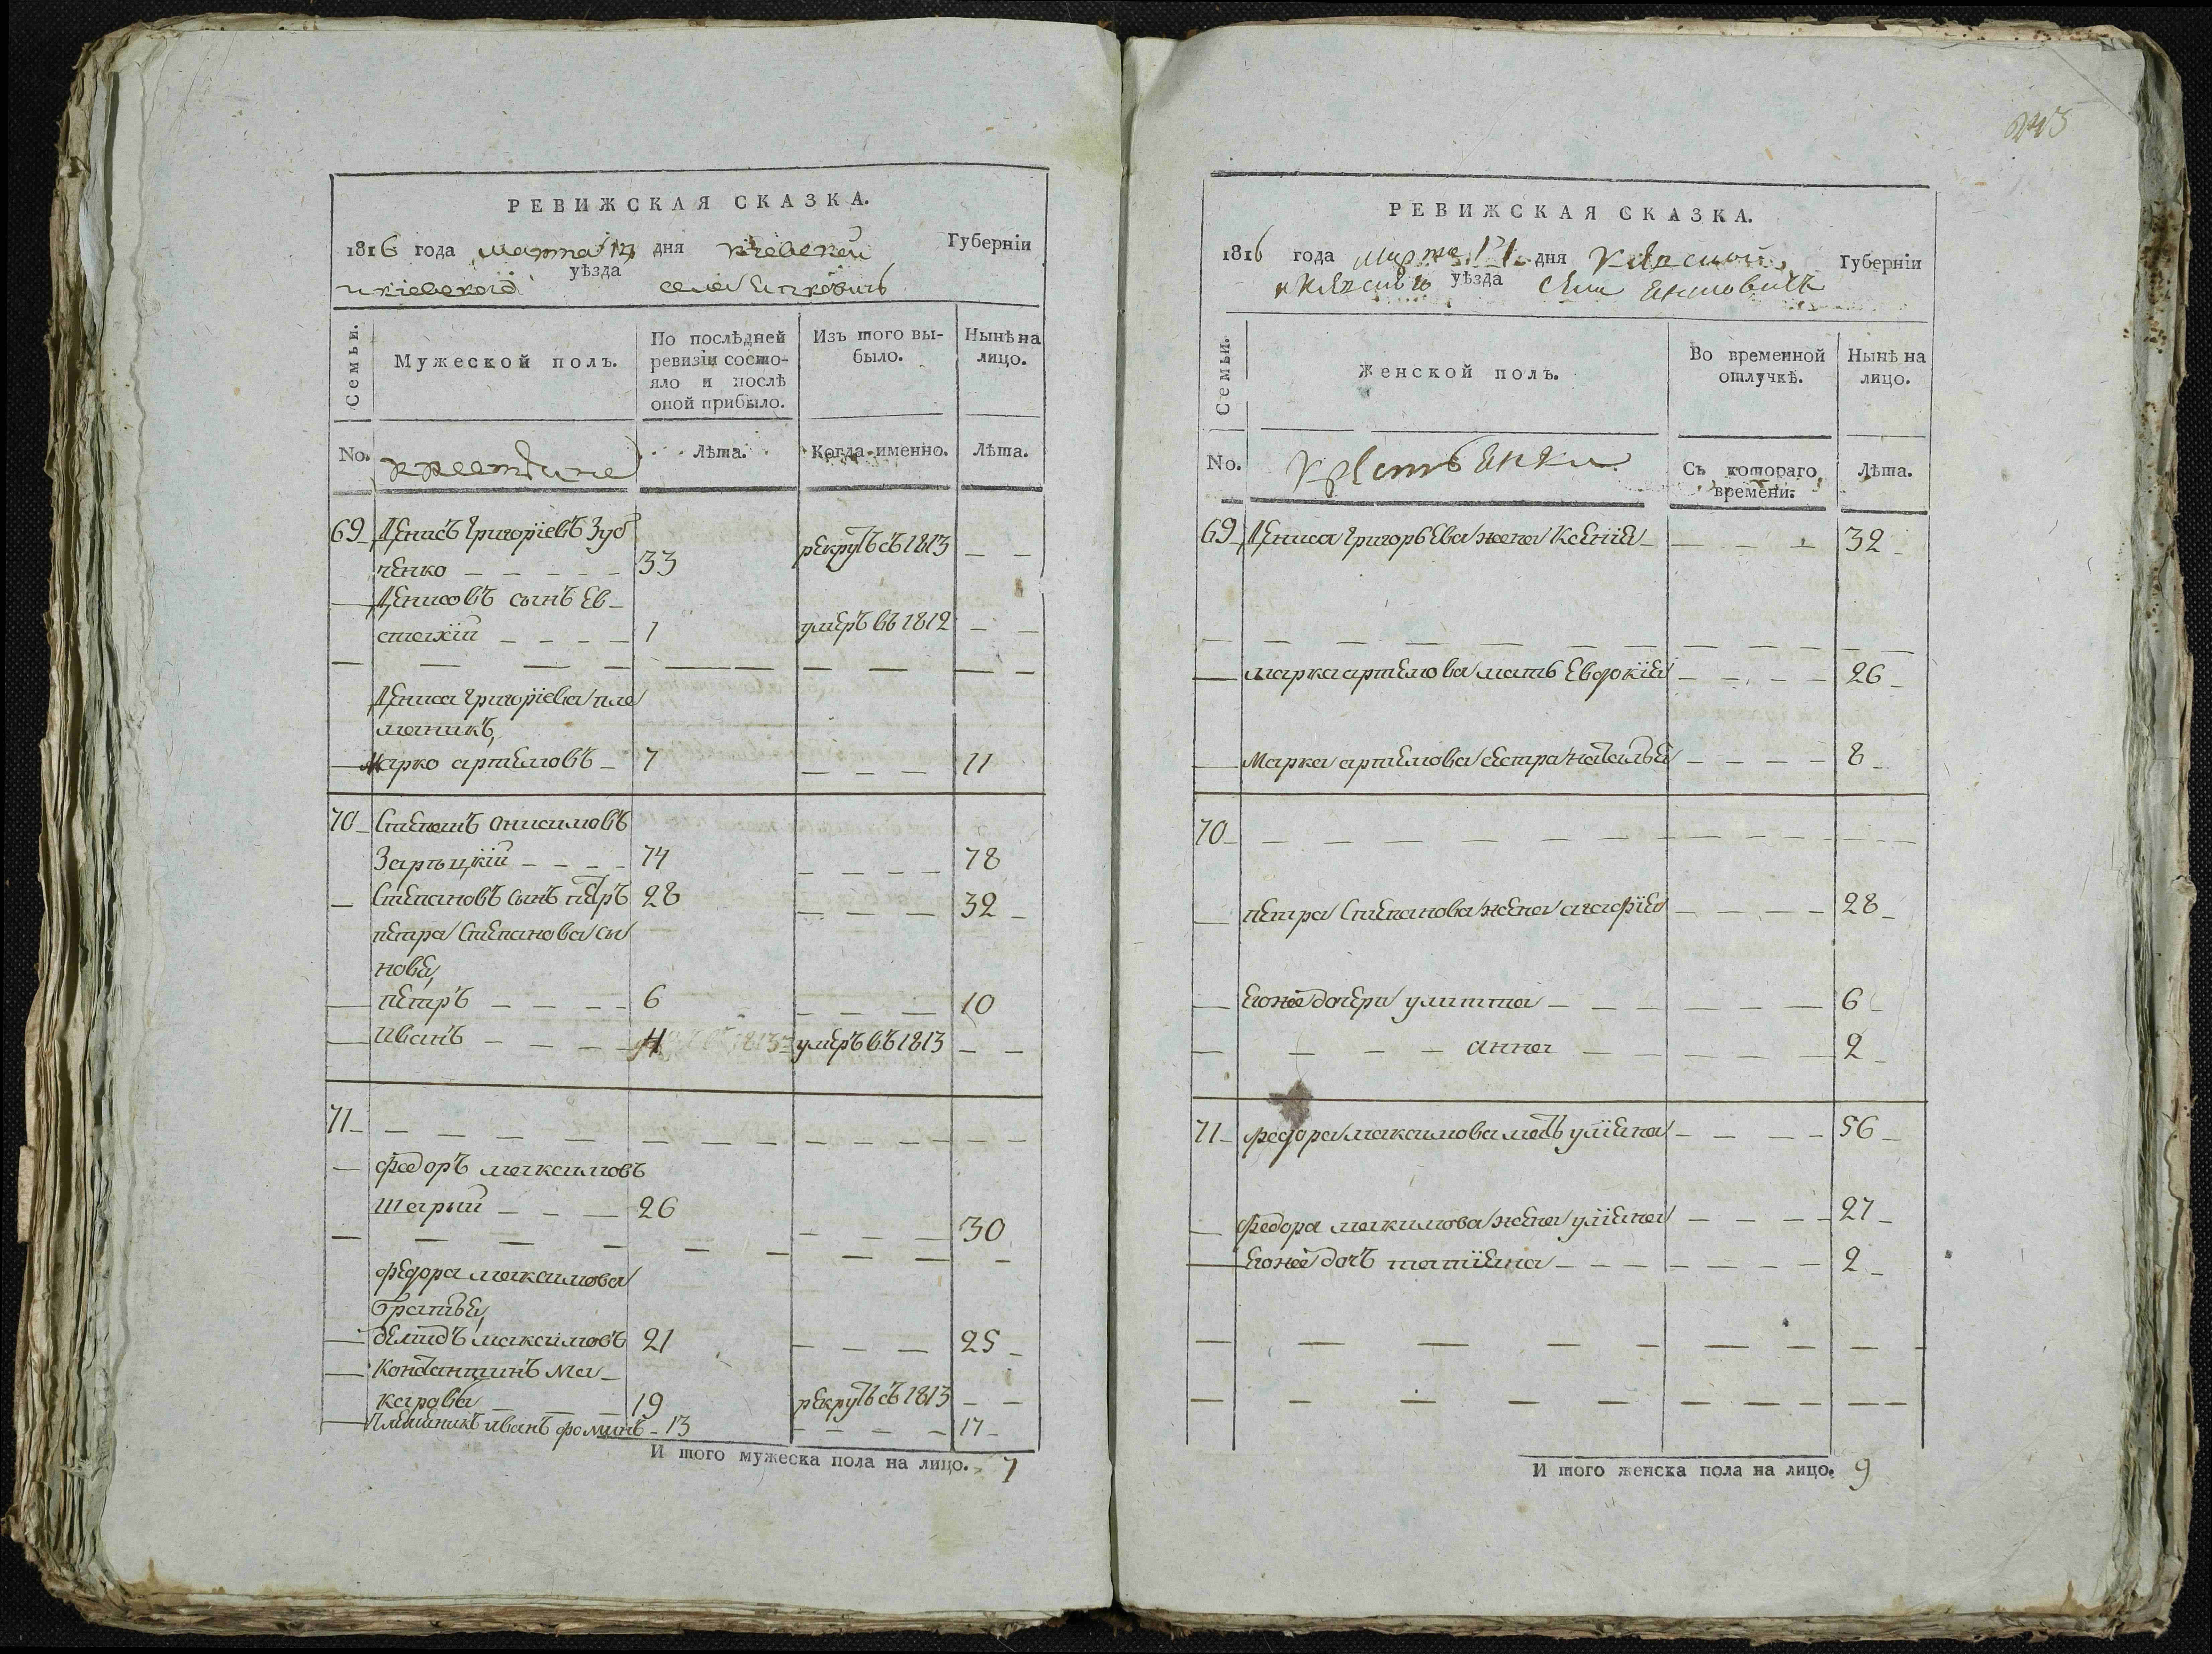 РЕВИЖСКАЯ СКАЗКА.
1816 года марта дня киевской Губерніи
и кіевского уѣзда села
Семьи.
Мужеской полъ.
По послѣдней ревизіи состо-
яло и послѣ
оной прибыло.
Изъ того вы-
было.
Нынѣ на
лицо.
No. крестьяне Лѣта. Когда именно. Лѣта.
69 Денисъ Григоріевъ Зуб
ченко 33 рекрутъ съ 1813
Денисовъ сынъ Ев
стахій 1 умеръ въ 1812
Дениса Григоріева пле
маникъ,
Марко артемовъ 7 11
70 Степанъ Онисимовъ
Зарыцкій 74 78
Степановъ сынъ петръ 28 32
петра Степанова сы
новя,
петръ 6 10
Иванъ 4 умеръ въ 1813
71
Федоръ максимовъ
Шарый 26 30
Федора максимова
братья,
демидъ максимовъ 21 25
Константинъ Ма
19 рекрутъ съ 1813
Племеникъ иванъ фоминъ 13 17
И того мужеска пола на лицо. 7
243
РЕВИЖСКАЯ СКАЗКА.
1816 года марта дня Киевской Губерніи
уѣзда села
Семьи.
Женской полъ.
Во временной
отлучкѣ.
Нынѣ на
лицо.
No. Крестьянки Съ котораго
времени. Лѣта.
69 Дениса Григорьева жена Ксенія 32
марка артемова мать Евдокія 26
Марка артемова сестра наталья 8
70
петра Степанова жена агафия 28
Егоже дочери улитта 6
анна 2
71 федора максимова мать улияна 56
Федора максимова жена улияна 27
Егоже дочь татияна 2
И того женска пола на лицо. 9